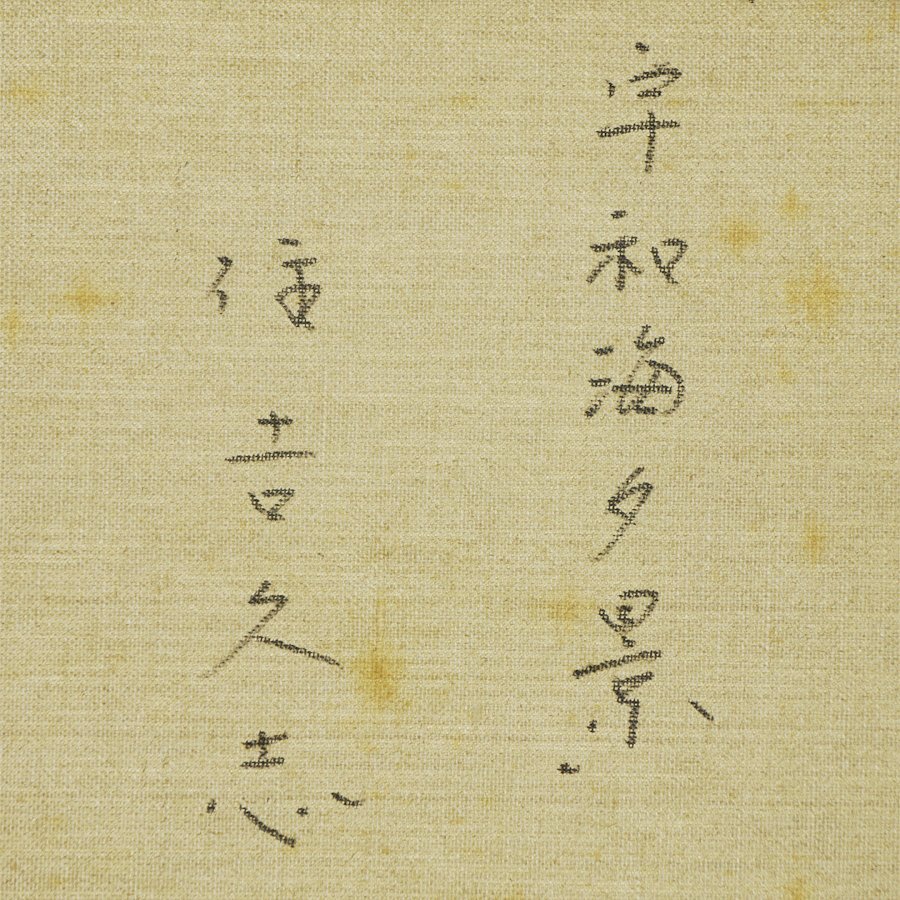 宇和海夕景
住吉久志